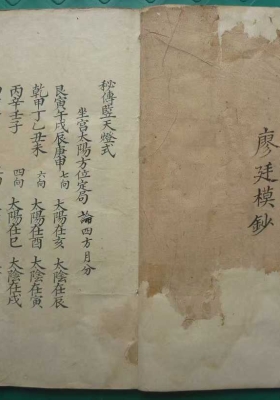 廖廷模鈔
秘傳竪天燈式
坐宮太陽方位定局 論四方月分
艮寅午戌辰庚申 七向 太陽在亥 太陰在辰
乾甲丁乙丑未 六向 太陽在酉 太陰在寅
丙辛壬子 四向 太陽在巳 太陰在戌